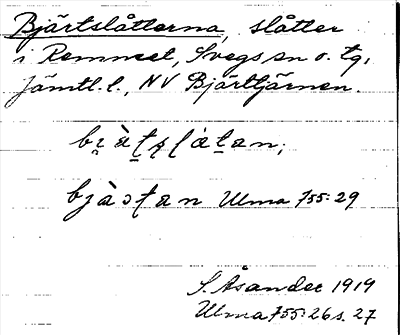 Bjärtslåtterna, slåtter
i Remmet, Svegs sn o. tg,
Jämtl. l., NV Bjärttjärnen.
Ulma 755:29
S. Åsander 1919
Ulma 755:26 s. 27